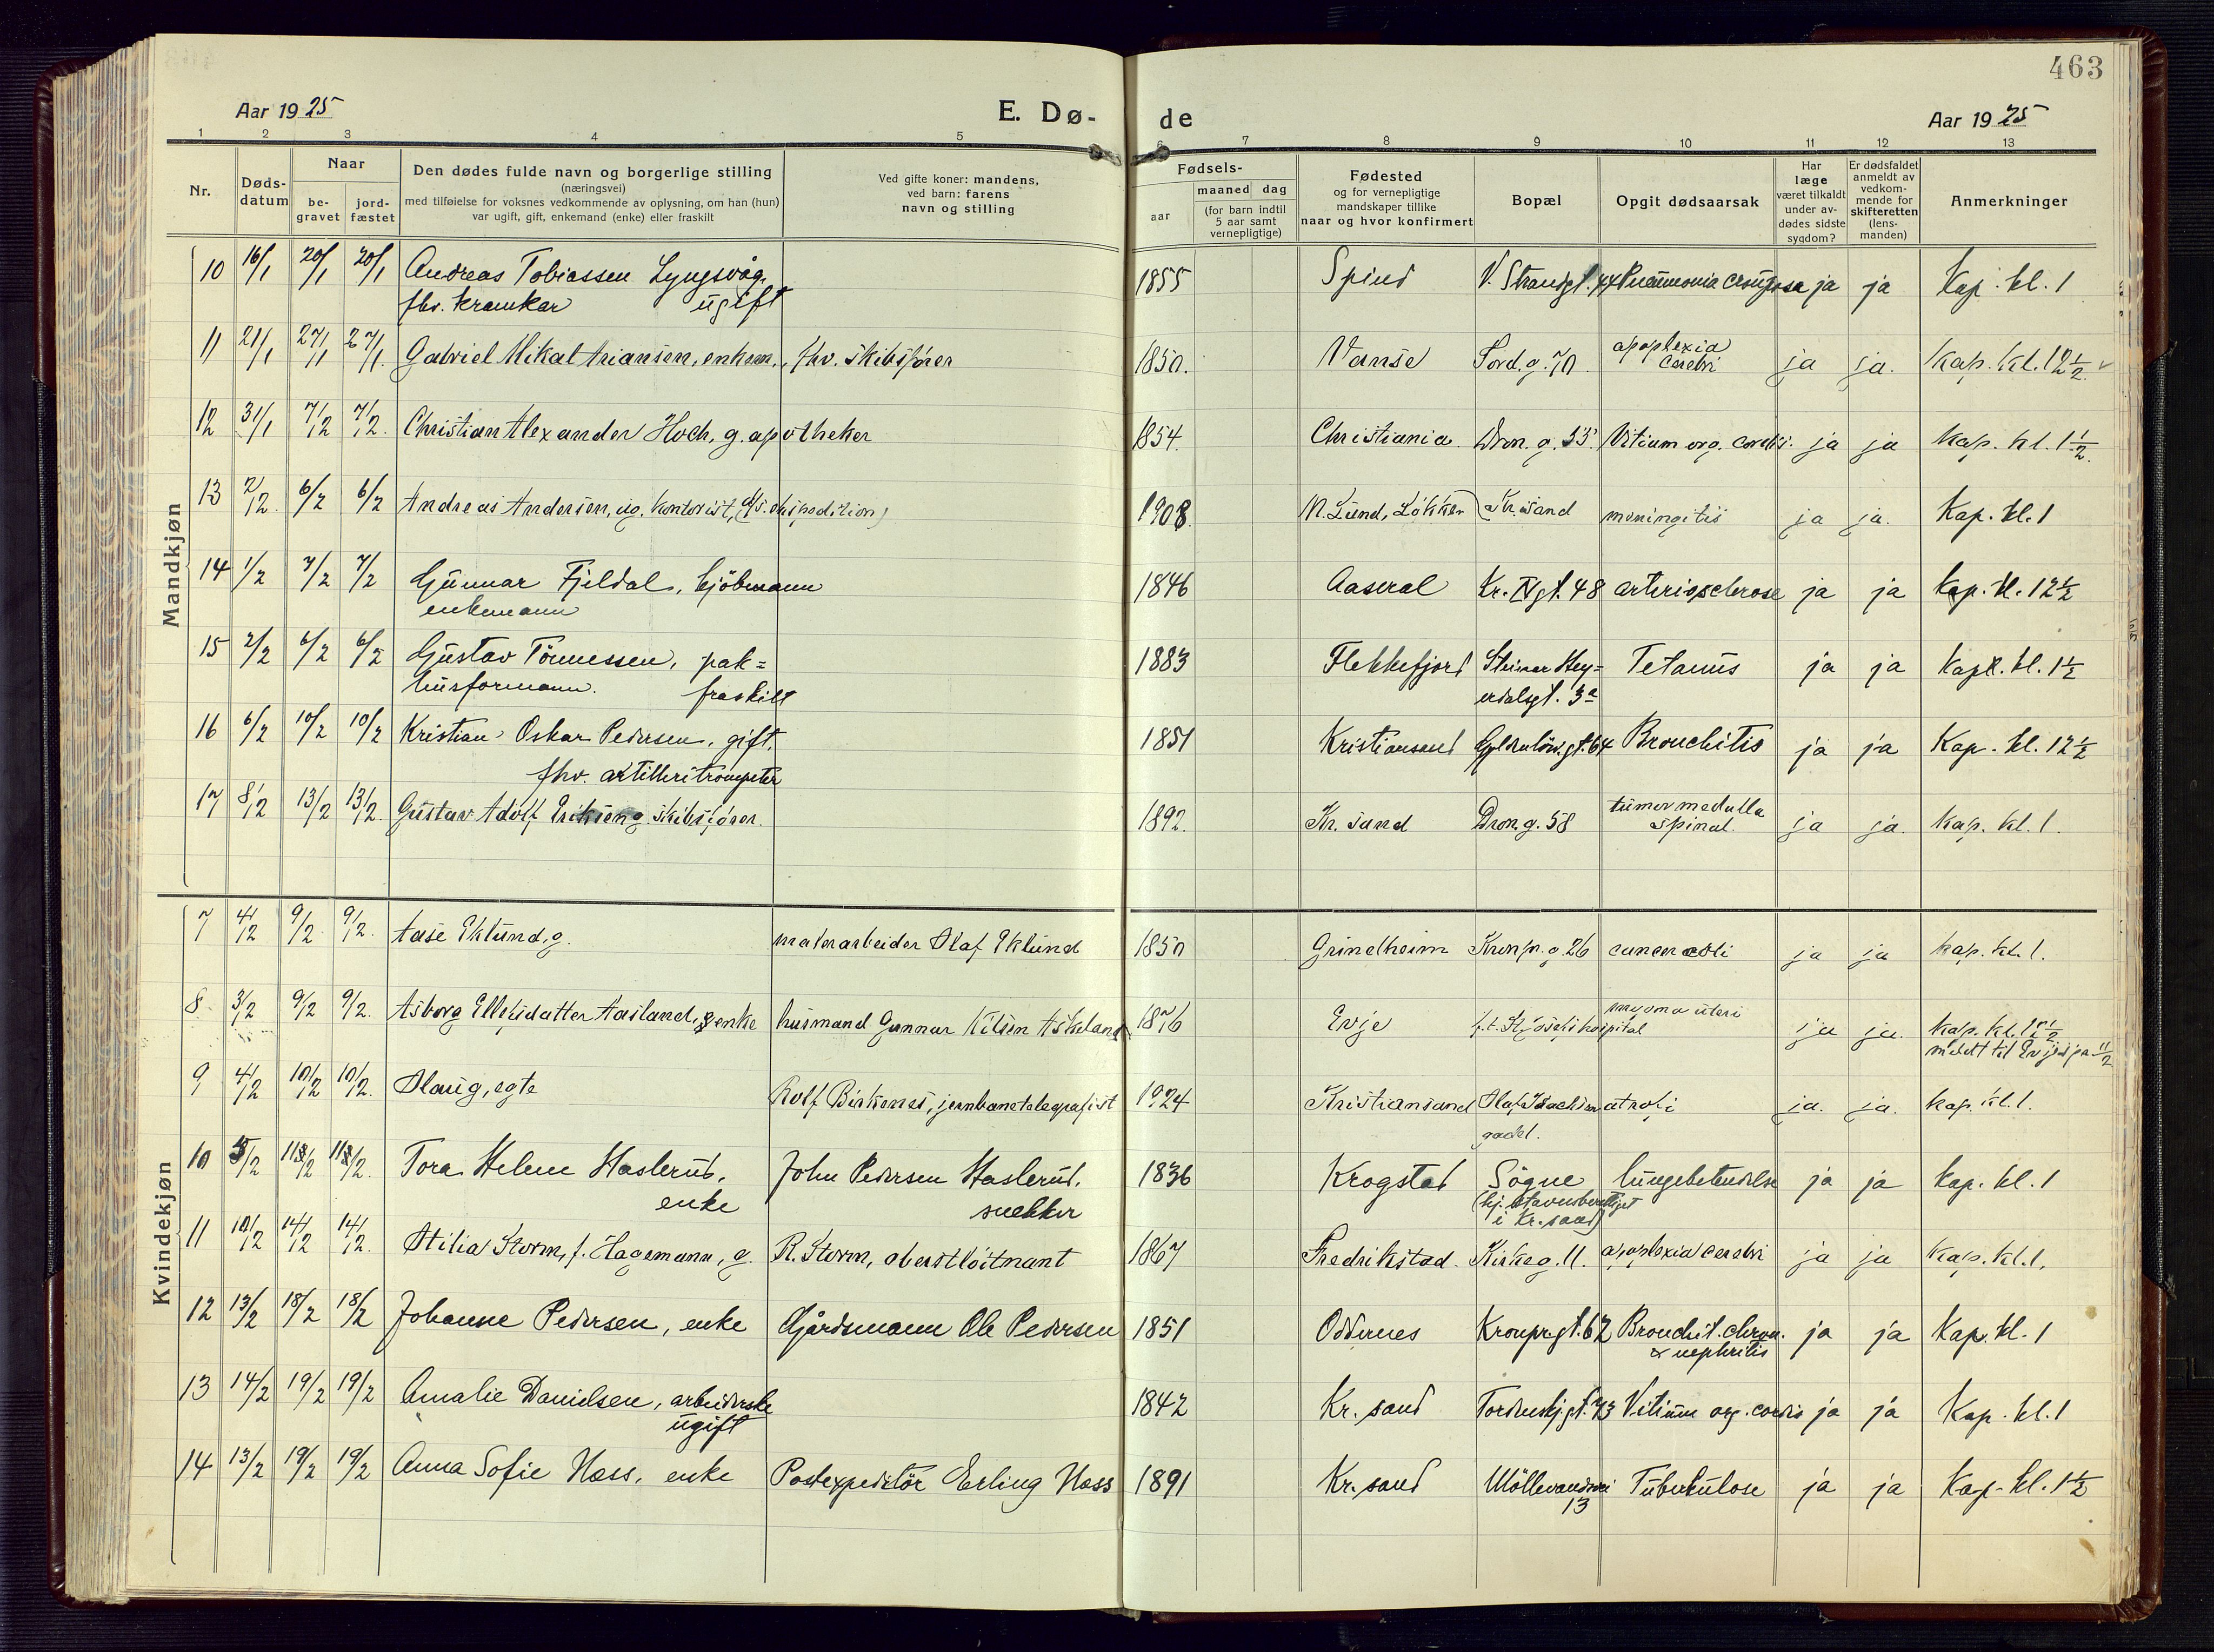 463
Aar 1925
E. Dø-
de
Aar 1925
1 2 3 4 5 6 7 8 9 10 11 12 13
Nr.
Døds-
datum
Naar
be-
gravet
jord-
fæstet
Den dødes fulde navn og borgerlige stilling
(næringsvei)
med tilføielse for voksnes vedkommende av oplysning, om han (hun)
var ugift, gift, enkemand (enke) eller fraskilt
Ved gifte koner: mandens,
ved barn: farens
navn og stilling
Fødsels-
aar
maaned dag
(for barn indtil
5 aar samt
vernepligtige)
Fødested
og for vernepligtige
mandskaper tillike
naar og hvor konfirmert
Bopæl
Opgit dødsaarsak
Har
læge
været tilkaldt
under av-
dødes sidste
sygdom?
Er dødsfaldet
anmeldt av
vedkom-
mende for
skifteretten
(lens-
manden)
Anmerkninger
Mandkjøn
10 16/1 20/1 20/1 Andreas Tobiassen Lyngsvåg, 1855 Spind V. Strandgt. 44 Pneumonia crouposa ja ja Kap. kl. 1
fhv. kramkar ugift
11 21/1 27/1 27/1. Gabriel Mikal Ariansen, enkem., fhv. skibsfører 1850. Vanse Tord. g. 70 apoplexia ja ja. Kap. kl. 12 1/2.
cerebri
12 31/1 7/2 7/2. Christian Alexander Hoch, g. apotheker 1854. Christiania. Dron. g. 53. Vitium org. cordis. ja ja Kap. kl. 1 1/2.
13 2/2. 6/2 6/2 Andreas Andersen, ug. kontorist, 1908 N. Lund, Løkken Kr.sand meningitis ja ja. Kap. kl. 1
14 1/2 7/2 7/2 Gunnar Fjeldal, kjöbmann 1846 Aaseral Kr. IV gt. 48 arteriosclerose ja ja Kap. kl. 12 1/2
enkemann
15 2/2 6/2 6/2 Gustav Tönnessen, pak= 1883 Flekkefjord Steinar Hey= Tetanus ja ja Kap. kl. 1 1/2
husformann. fraskilt erdalsgt. 3a
16 6/2 10/2 10/2 Kristian Oskar Pedersen, gift, 1851 Kristiansand Gyldenløv.gt. 64 Bronchitis ja ja Kap. kl. 12 1/2
fhv. artilleritrompeter
17 8/2 13/2 13/2. Gustav Adolf Eriksen g. skibsfører. 1892. Kr. sand Dron. g. 58 tumor medulla ja ja. Kap. kl. 1.
spinal.
Kvindekjøn
7 4/2 9/2 9/2. Aase Eklund, g. malerarbeider Olaf Eklund 1850 Grindheim Kronpr. g. 26 cancer coli ja ja Kap. kl. 1.
8 3/2 9/2 9/2. Asborg Ellefsdatter Aasland, enke husmand Gunnar Nilsen Askeland 1876 Evje f. t. St. Josefs hospital myoma uteri ja ja. Kap. kl. 12 1/2
meldt til Evje
9 4/2 10/2 10/2. Olaug, egte Rolf Birkenes, jernbanetelegrafist 1924 Kristiansand Olaf Isachsen atrofi ja. ja. Kap. kl. 1.
gade 1.
10 5/2 11/2 11/2. Tora Helene Haslerud, John Pedersen Haslerud, 1836 Krogstad Sögne lungebetendelse ja ja Kap. kl. 1
enke snekker (hj.stavnsberettiget
i Kr.sand)
11 10/2 14/2 14/2. Otilia Storm, f. Hagemann, g. R. Storm, oberstløitnant 1867 Fredrikstad. Kirkeg. 11. apoplexia cerebri ja ja Kap. kl. 1.
12 13/2 18/2 18/2 Johanne Pedersen, enke Gjårdsmann Ole Pedersen 1851 Oddernes Kronpr.gt. 62 Bronchit. chron. ja ja Kap. kl. 1
& nephritis
13 14/2 19/2 19/2 Amalie Danielsen, arbeiderske 1842 Kr. sand Tordenskj.gt. 73 Vitium org. cordis ja ja Kap. kl. 1
ugift
14 13/2 19/2 19/2 Anna Sofie Hass, enke Postexpeditör Erling Hass 1891 Kr. sand Möllevandsvei Tuberkulose ja ja Kap. kl. 1 1/2
13